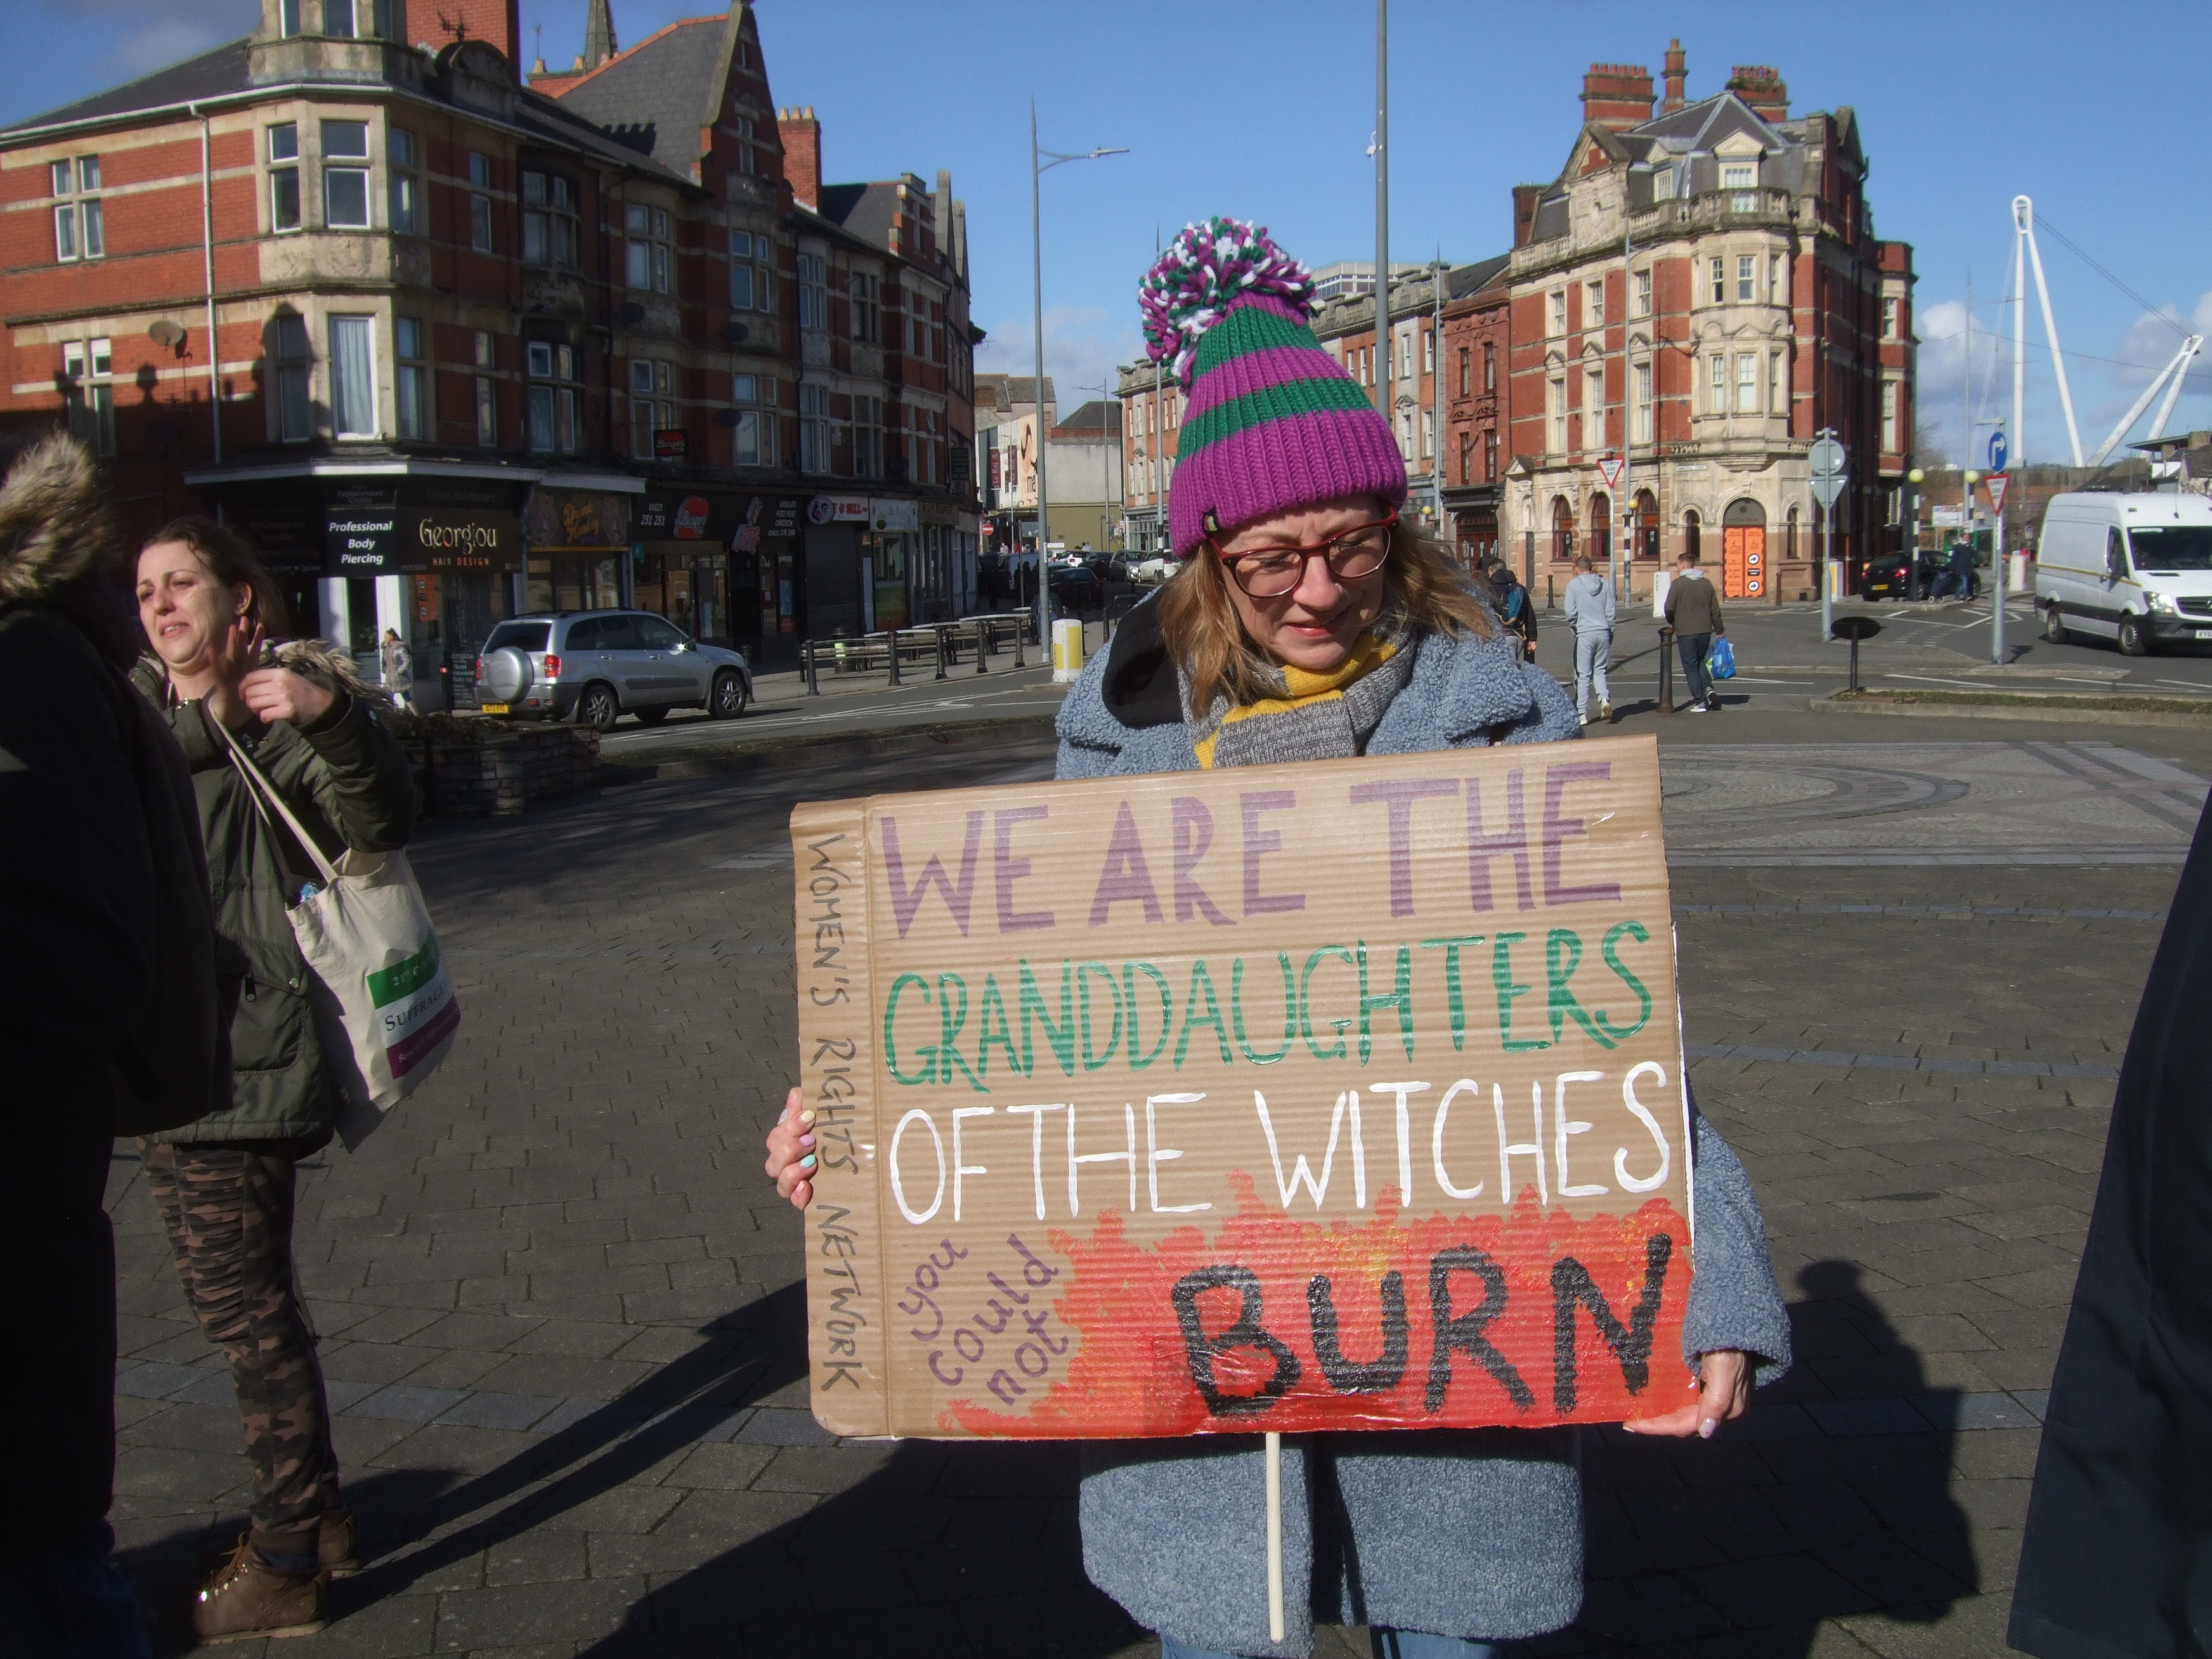 Professional
Body
Piercing
Georgiou
HAIR DESIGN
251 251
WE ARE THE
GRANDDAUGHTERS
OF THE WITCHES
you
could
not
BURN
WOMEN'S RIGHTS NETWORK
21st
SUFFRAGE